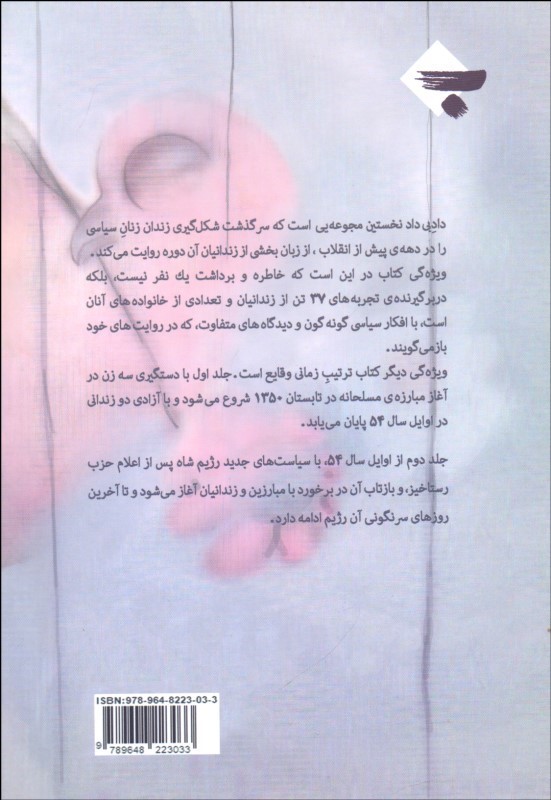 دادِبی داد نخستین مجموعه‌یی است که سرگذشت شکل‌گیری زندان زنانِ سیاسی
را در دهه‌ی پیش از انقلاب ، از زبان بخشی از زندانیان آن دوره روایت می‌کند.
ویژه‌گی کتاب در این است که خاطره و برداشت یك نفر نیست، بلکه
دربرگیرنده‌ی تجربه‌های ۳۷ تن از زندانیان و تعدادی از خانواده‌های آنان
است، با افکار سیاسی گونه‌گون و دیدگاه‌های متفاوت، که در روایت‌های خود
بازمی‌گویند.
ویژه‌گی دیگر کتاب ترتیبِ زمانی وقایع است. جلد اول با دستگیری سه زن در
آغاز مبارزه‌ی مسلحانه در تابستان ۱۳۵۰ شروع می‌شود و با آزادی دو زندانی
در اوایل سال ۵۴ پایان می‌یابد.
جلد دوم از اوایل سال ۵۴، با سیاست‌های جدید رژیم شاه پس از اعلام حزب
رستاخیز، و بازتاب آن در برخورد با مبارزین و زندانیان آغاز می‌شود و تا آخرین
روزهای سرنگونی آن رژیم ادامه دارد.
ISBN:978-964-8223-03-3
9 789648 223033